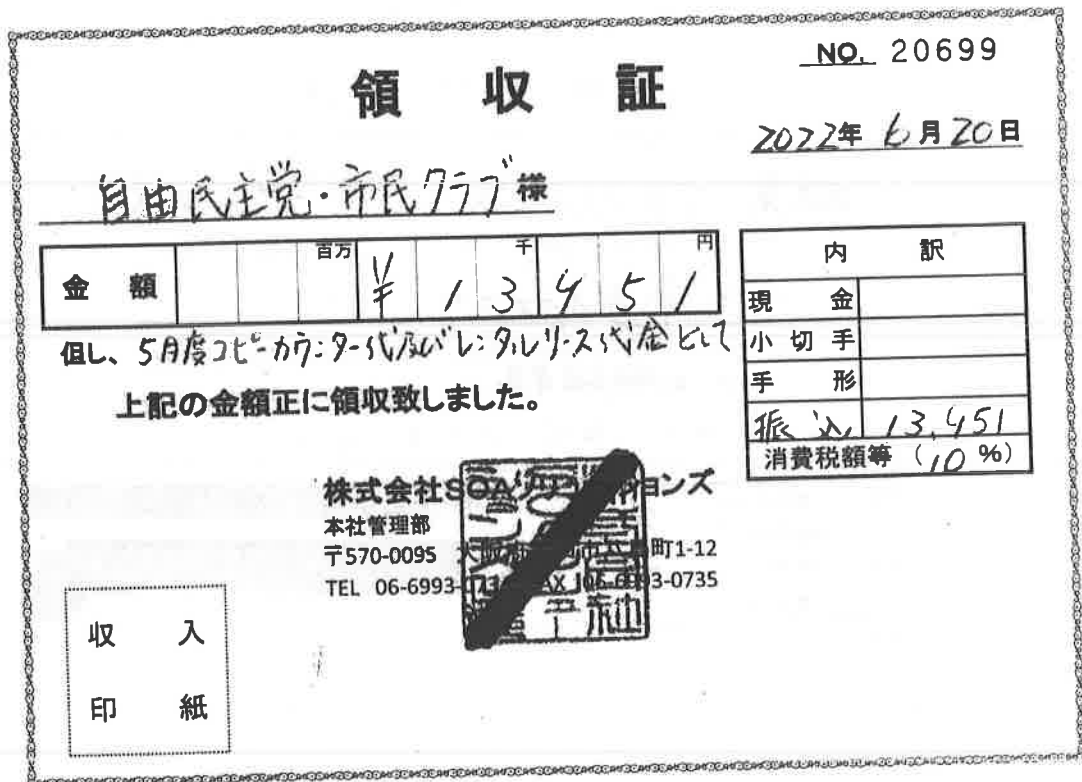 NO. 20699
領収証
2022年 6月20日
自由民主党・市民クラブ様
金額 百万 千 円
¥13451
但し、5月度コピーカウンター代及びレンタルリース代金として
上記の金額正に領収致しました。
内訳
現金
小切手
手形
振込 13,451
消費税額等 (10%)
株式会社SOAソリューションズ
本社管理部
〒570-0095 大阪 町1-12
TEL 06-6993- FAX 06-6993-0735
収入
印紙